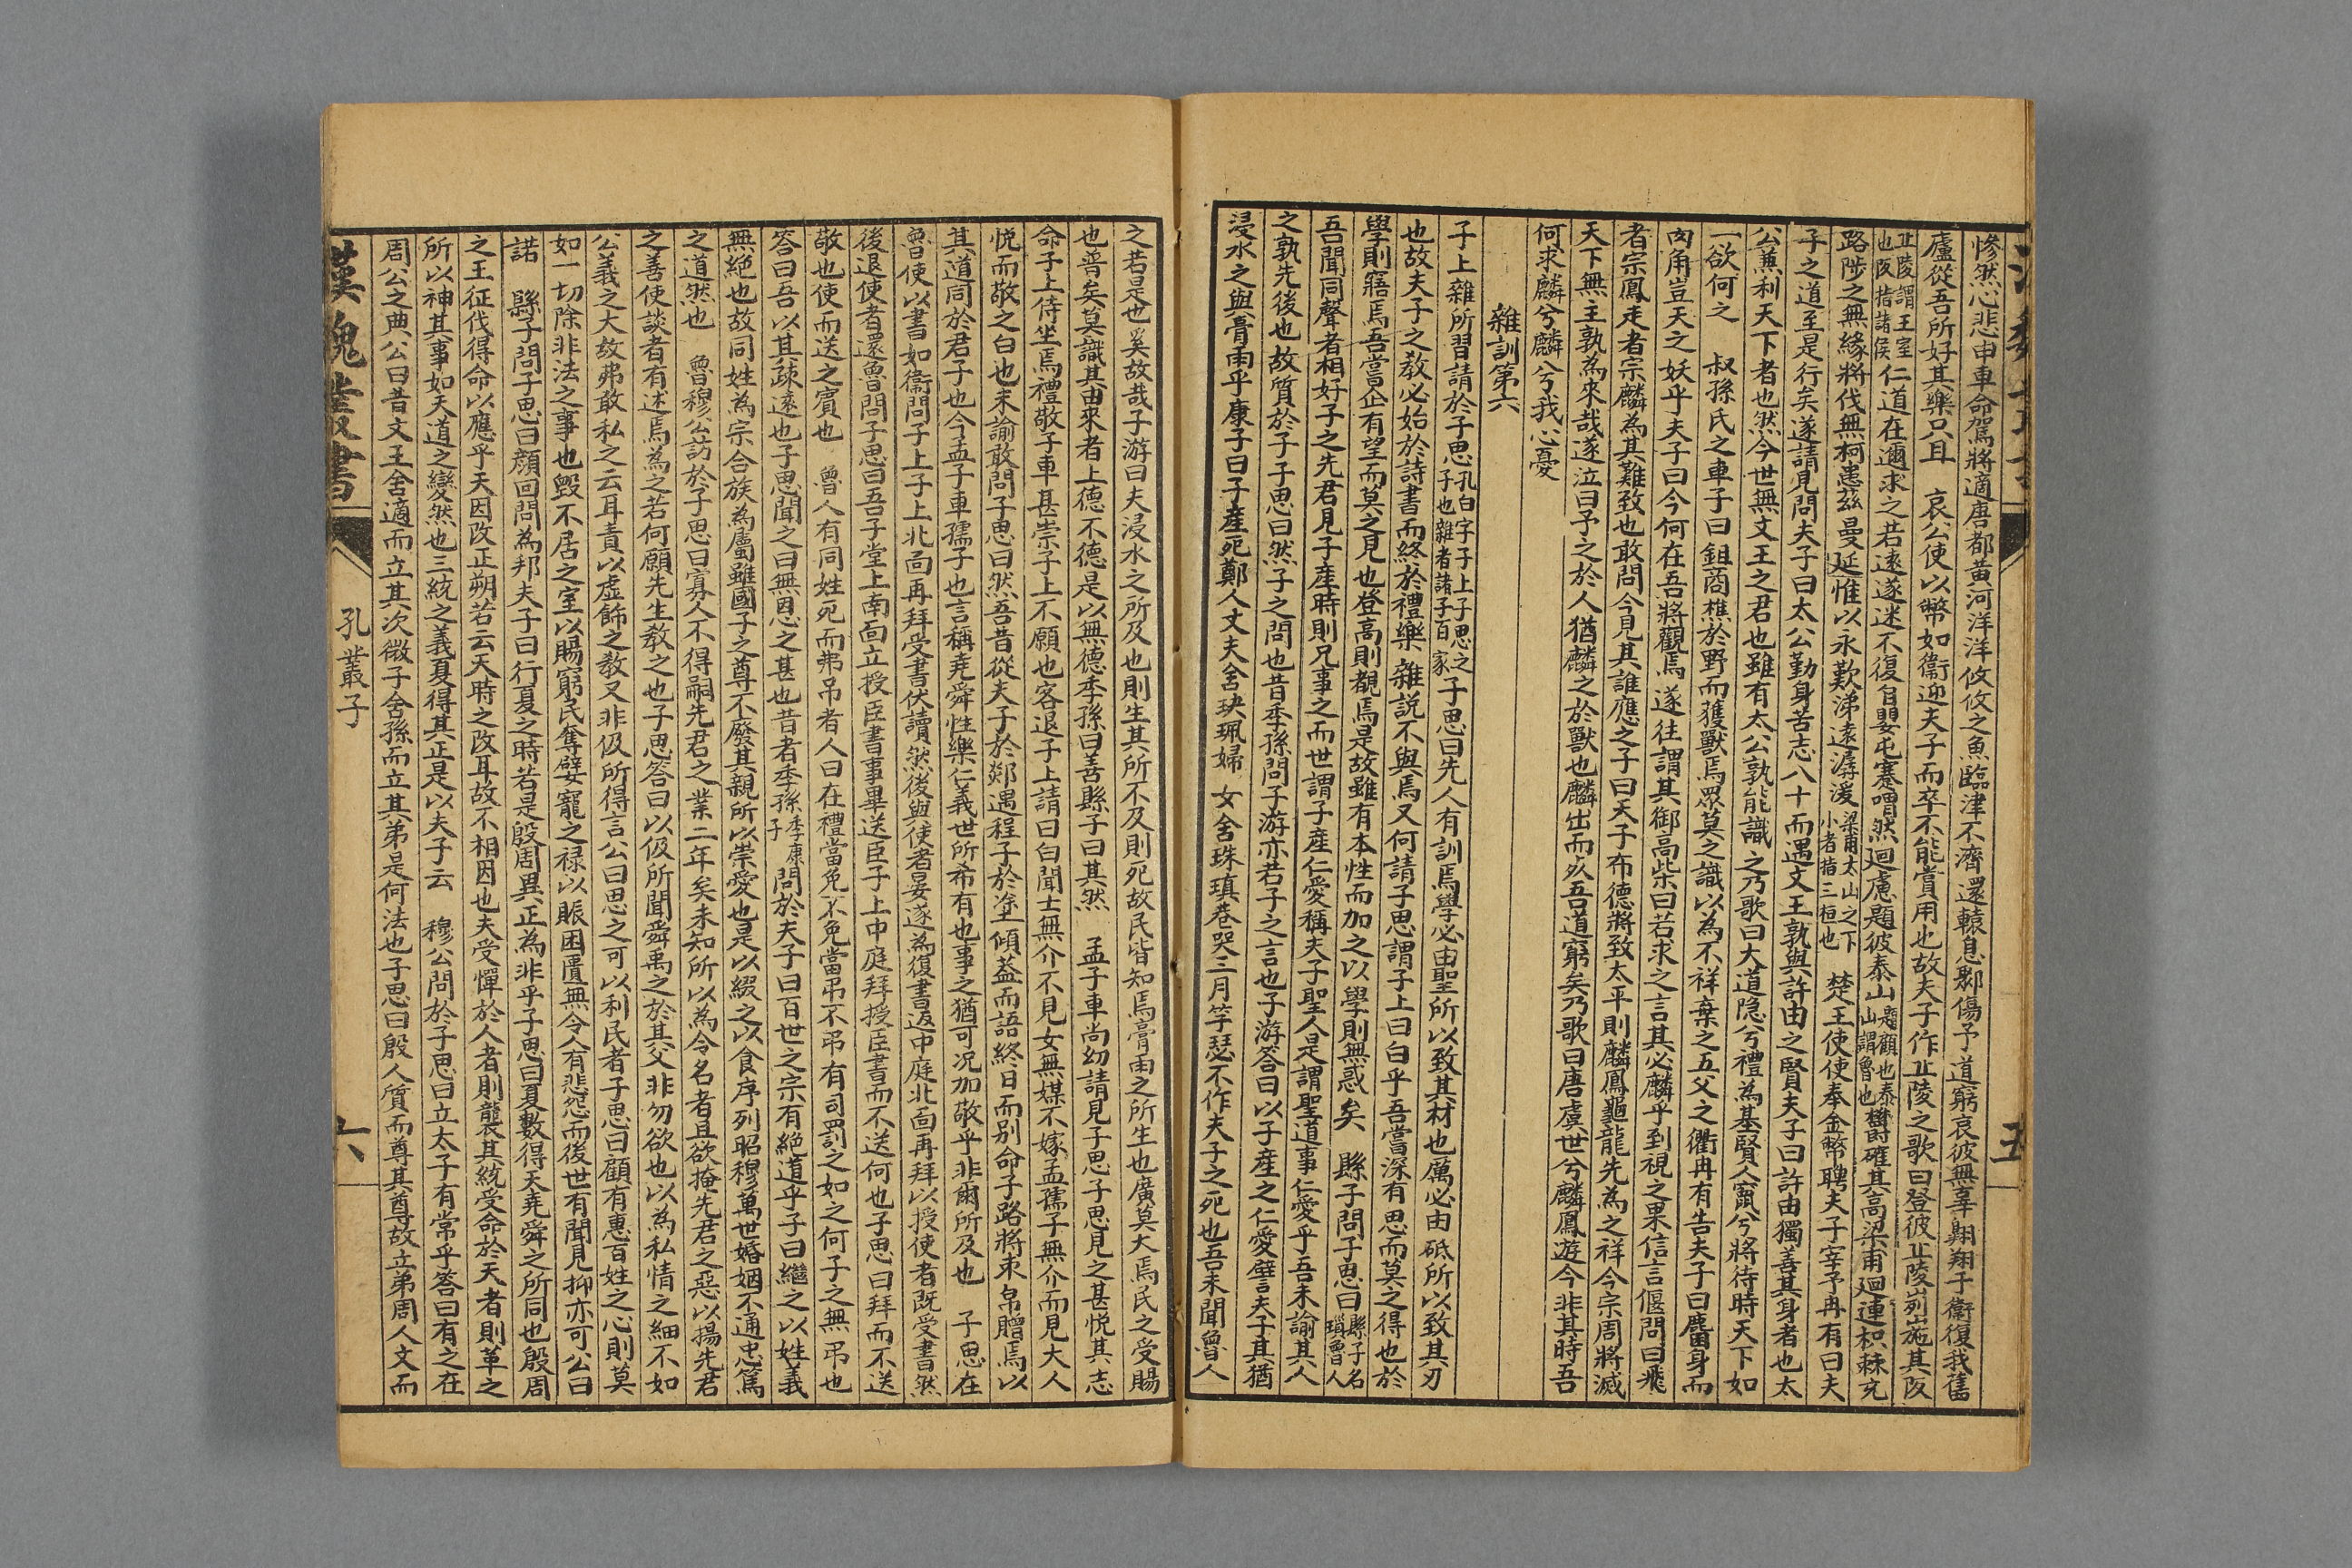 慘然心悲巾車命駕將適唐都黃河洋洋攸攸之魚臨津不濟還轅息鄹傷予道窮哀彼無辜翺翔于衞復我舊
廬從吾所好其樂只且　哀公使以幣如衞迎夫子而卒不能賞用也故夫子作丘陵之歌曰登彼丘陵峛崺其阪
丘陵謂王室也阪指諸侯仁道在邇求之若遠遂迷不復自嬰屯蹇喟然迴慮題彼泰山題顧也泰山謂魯也欎確其高梁甫迴連枳棘充
路陟之無緣將伐無柯患茲蔓延惟以永歎涕霣潺湲梁甫太山之下小者指三桓也　楚王使使奉金幣聘夫子宰予冉有曰夫
子之道至是行矣遂請見問夫子曰太公勤身苦志八十而遇文王孰與許由之賢夫子曰許由獨善其身者也太
公兼利天下者也然今世無文王之君也雖有太公孰能識之乃歌曰大道隱兮禮為基賢人竄兮將待時天下如
一欲何之　叔孫氏之車子曰鉏商樵於野而獲獸焉眾莫之識以為不祥棄之五父之衢冉有告夫子曰麕身而
肉角豈天之妖乎夫子曰今何在吾將觀焉遂往謂其御高柴曰若求之言其必麟乎到視之果信言偃問曰飛
者宗鳳走者宗麟為其難致也敢問今見其誰應之子曰天子布德將致太平則麟鳳龜龍先為之祥今宗周將滅
天下無主孰為來哉遂泣曰予之於人猶麟之於獸也麟出而死吾道窮矣乃歌曰唐虞世兮麟鳳遊今非其時吾
何求麟兮麟兮我心憂
雜訓第六
子上雜所習請於子思孔白字子上子思之子也雜者諸子百家子思曰先人有訓焉學必由聖所以致其材也厲必由砥所以致其刃
也故夫子之教必始於詩書而終於禮樂雜說不與焉又何請子思謂子上曰白乎吾嘗深有思而莫之得也於
學則寤焉吾嘗企有望而莫之見也登高則覩焉是故雖有本性而加之以學則無惑矣　縣子問子思曰縣子名瑣魯人
吾聞同聲者相好子之先君見子產時則兄事之而世謂子產仁愛稱夫子聖人是謂聖道事仁愛乎吾未諭其人
之孰先後也故質於子子思曰然子之問也昔季孫問子游亦若子之言也子游答曰以子產之仁愛譬夫子其猶
浸水之與膏雨乎康子曰子產死鄭人丈夫舍玦珮婦女舍珠瑱巷哭三月竽瑟不作夫子之死也吾未聞魯人
五
之若是也奚故哉子游曰夫浸水之所及也則生其所不及則死故民皆知焉膏雨之所生也廣莫大焉民之受賜
也普矣莫識其由來者上德不德是以無德季孫曰善縣子曰其然　孟子車尚幼請見子思子思見之甚悅其志
命子上侍坐焉禮敬子車甚崇子上不願也客退子上請曰白聞士無介不見女無媒不嫁孟孺子無介而見大人
悅而敬之白也未諭敢問子思曰然吾昔從夫子於郯遇程子於塗傾蓋而語終日而別命子路將束帛贈焉以
其道同於君子也今孟子車孺子也言稱堯舜性樂仁義世所希有也事之猶可況加敬乎非爾所及也　子思在
魯使以書如衞問子上子上北面再拜受書伏讀然後與使者宴遂為復書返中庭北面再拜以授使者既受書然
後退使者還魯問子思曰吾子堂上南面立授臣書事畢送臣子上中庭拜授臣書而不送何也子思曰拜而不送
敬也使而送之賓也　魯人有同姓死而弗吊者人曰在禮當免不免當吊不弔有司罰之如之何子之無弔也
答曰吾以其疎遠也子思聞之曰無恩之甚也昔者季孫季康子問於夫子曰百世之宗有絕道乎子曰繼之以姓義
無絕也故同姓為宗合族為屬雖國子之尊不廢其親所以崇愛也是以綴之以食序列昭穆萬世婚姻不通忠篤
之道然也　魯穆公訪於子思曰寡人不得嗣先君之業二年矣未知所以為令名者且欲掩先君之惡以揚先君
之善使談者有述焉為之若何願先生教之也子思答曰以伋所聞舜禹之於其父非勿欲也以為私情之細不如
公義之大故弗敢私之云耳責以虛飾之教又非伋所得言公曰思之可以利民者子思曰顧有惠百姓之心則莫
如一切除非法之事也毀不居之室以賜窮民奪嬖寵之祿以賑困匱無令人有悲怨而後世有聞見抑亦可公曰
諾　縣子問子思曰顏回問為邦夫子曰行夏之時若是殷周異正為非乎子思曰夏數得天堯舜之所同也殷周
之王征伐得命以應乎天因改正朔若云天時之改耳故不相因也夫受憚於人者則襲其統受命於天者則革之
所以神其事如天道之變然也三統之義夏得其正是以夫子云　穆公問於子思曰立太子有常乎答曰有之在
周公之典公曰昔文王舍適而立其次微子舍孫而立其弟是何法也子思曰殷人質而尊其尊故立弟周人文而
漢魏叢書
孔叢子
六